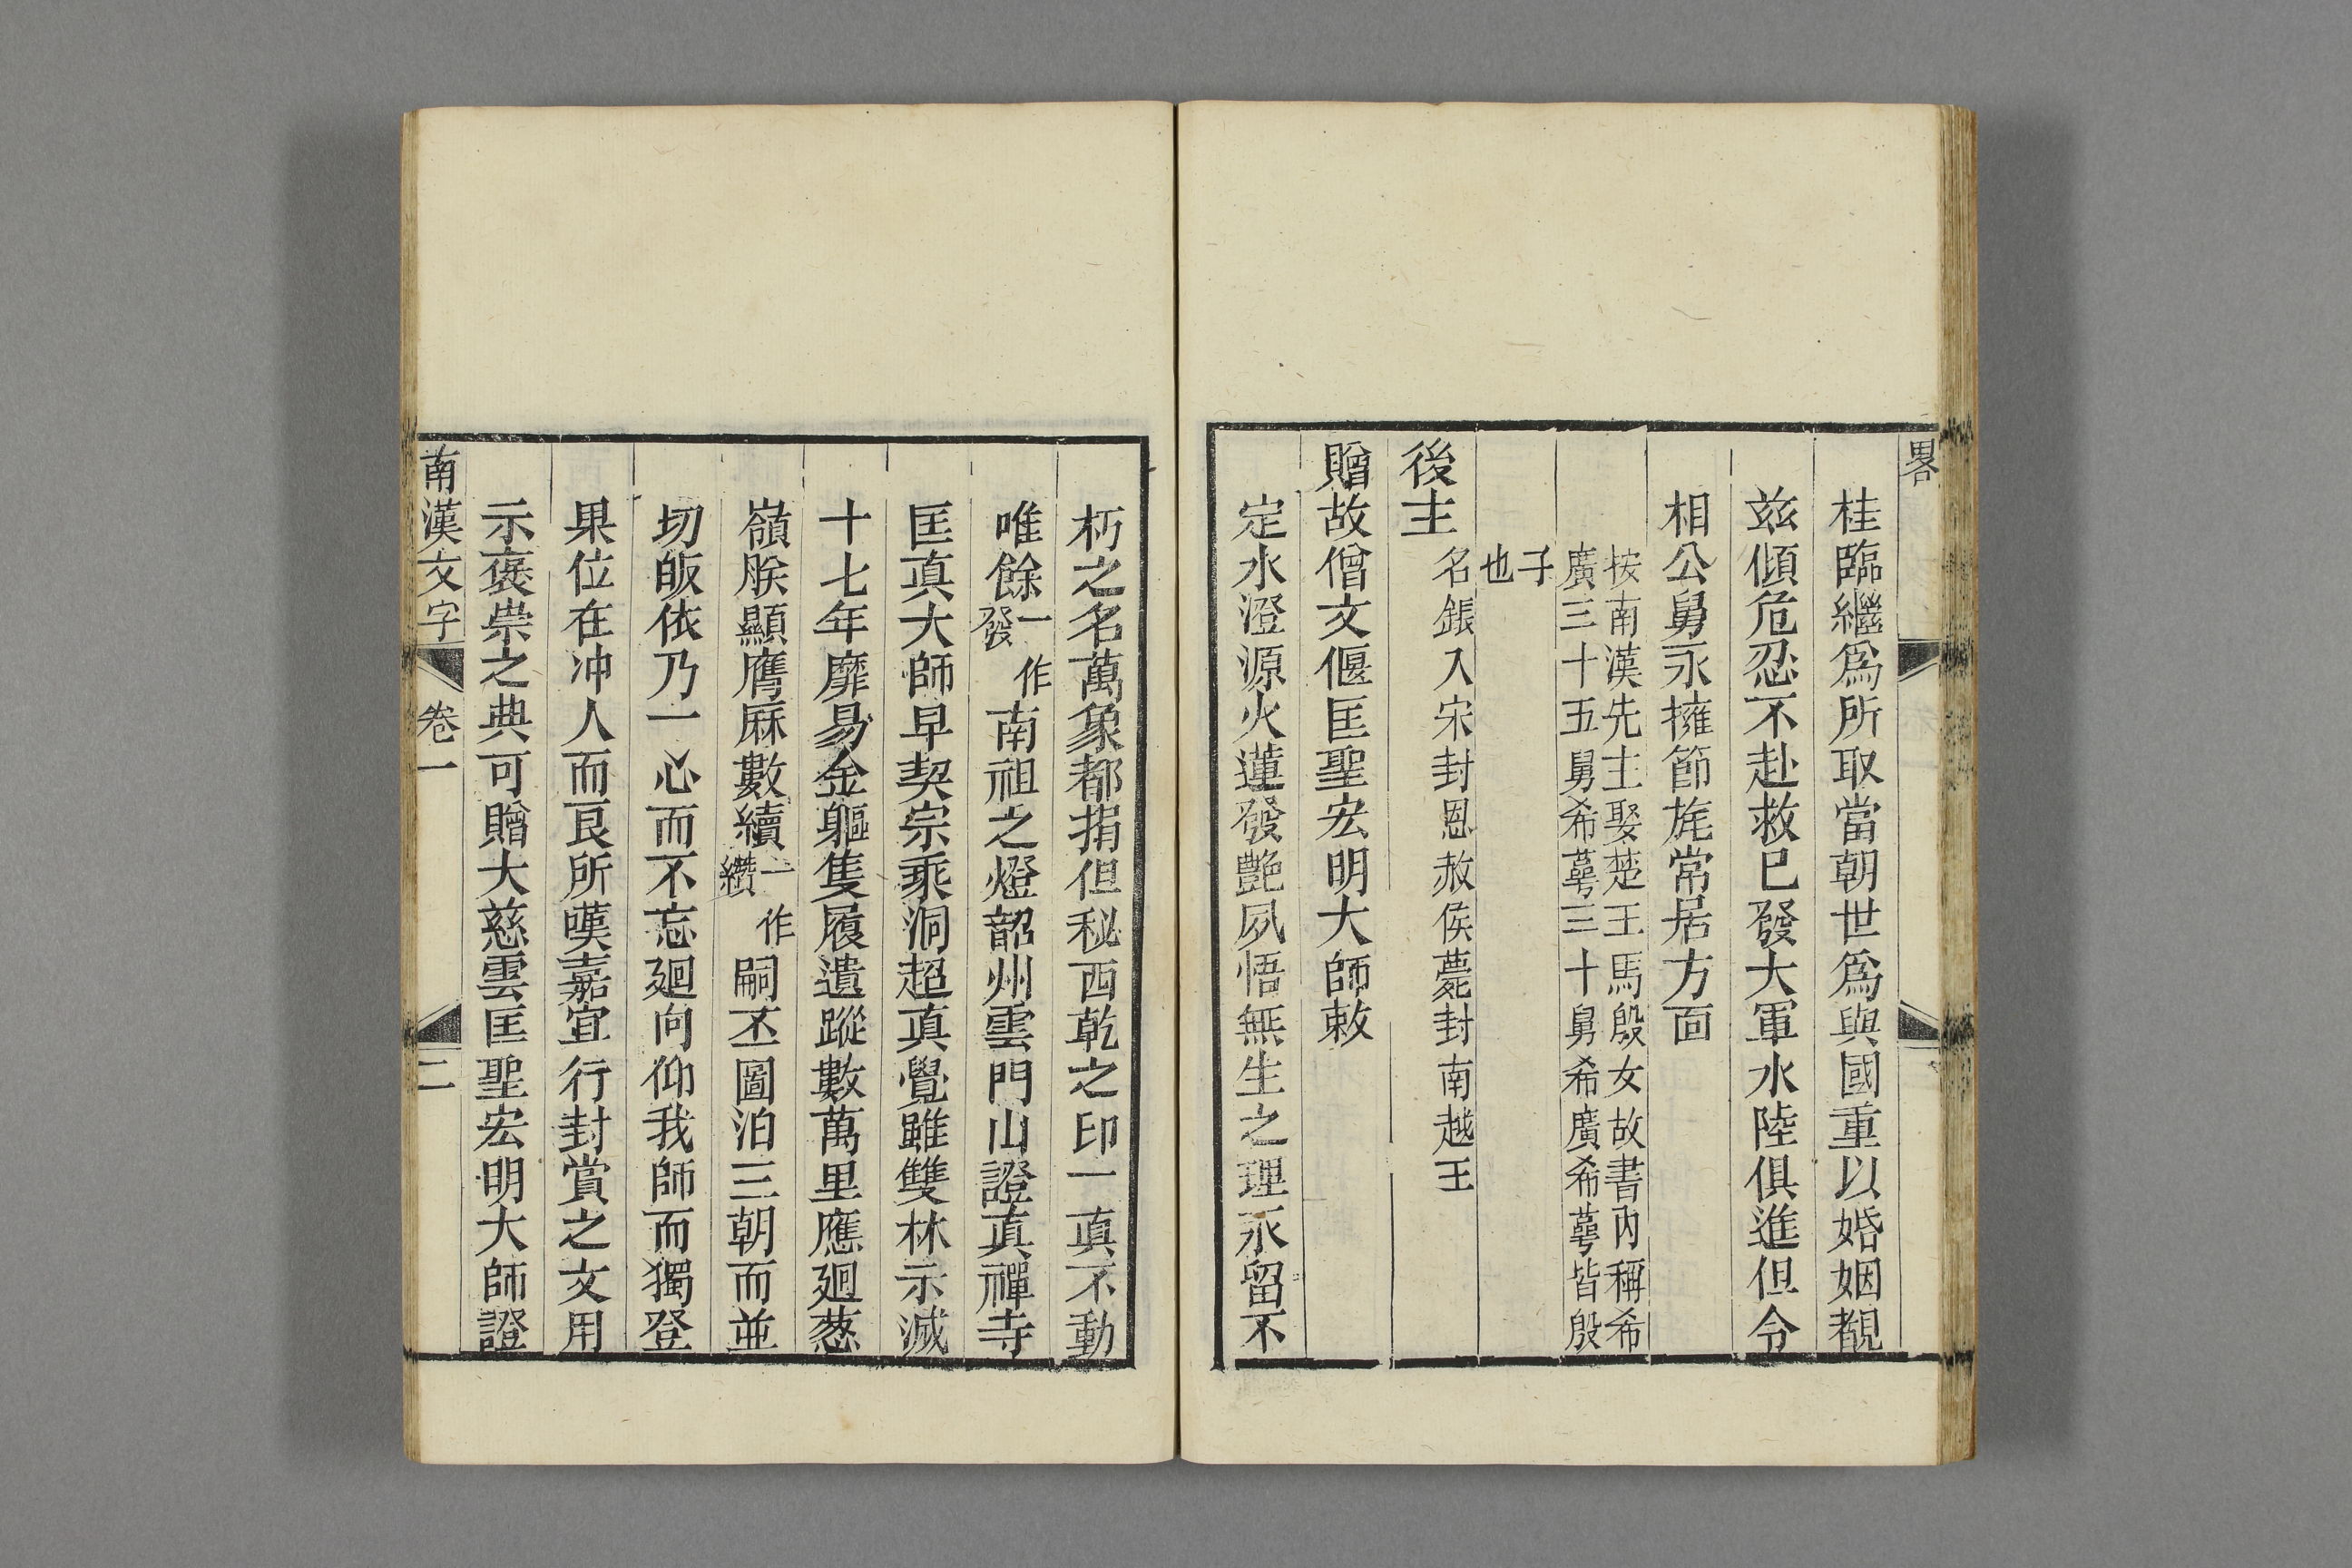 畧
桂臨繼爲所取當朝世爲與國重以婚姻覩
茲傾危忍不赴救已發大軍水陸俱進但令
相公舅永擁節旄常居方面
按南漢先主娶楚王馬殷女故書內稱希
廣三十五舅希萼三十舅希廣希萼皆殷
子
也
後主
名鋹入宋封恩赦侯薨封南越王
贈故僧文偃匡聖宏明大師敕
定水澄源火蓮發艷夙悟無生之理永留不
朽之名萬象都捐但秘西乾之印一真不動
唯餘一作發南祖之燈韶州雲門山證真禪寺
匡真大師早契宗乘洞超真覺雖雙林示滅
十七年靡易金軀隻履遺蹤數萬里應廻葱
嶺朕顯膺厤數續一作纘嗣丕圖洎三朝而並
切皈依乃一心而不忘廻向仰我師而獨登
果位在沖人而艮所嘆嘉宜行封賞之文用
示褒崇之典可贈大慈雲匡聖宏明大師證
南漢文字 卷一 二